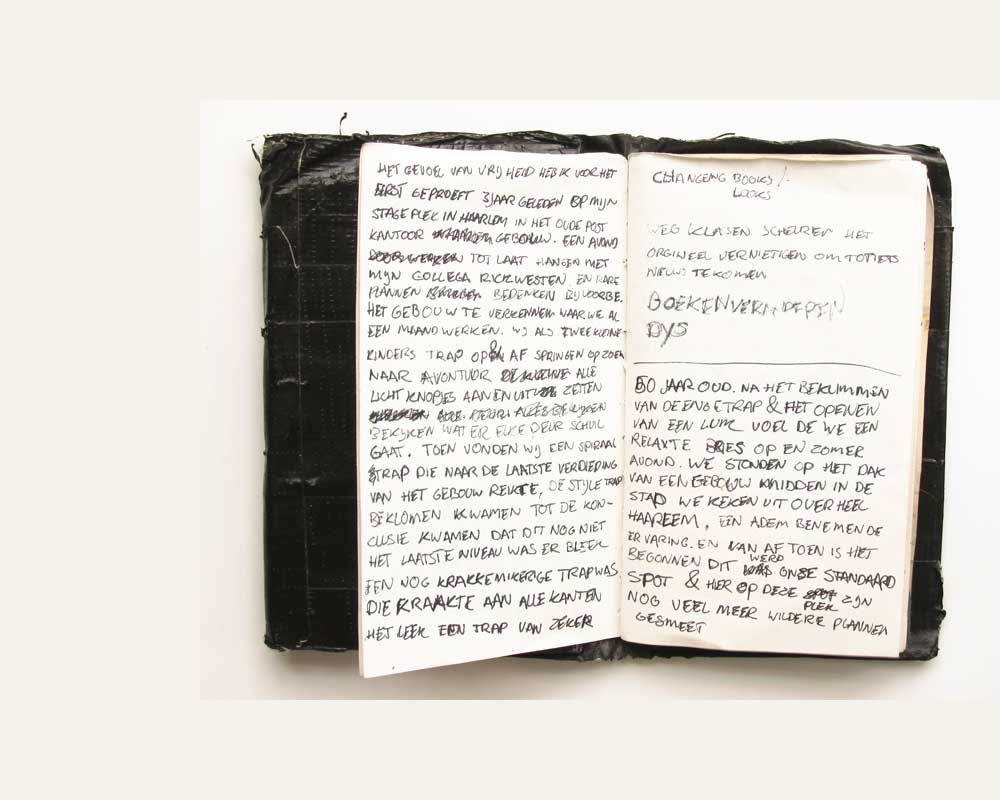 HET GEVOEL VAN VRIJHEID HEB IK VOOR HET
EERST GEPROEFT 3 JAAR GELEDEN OP MIJN
STAGEPLEK IN HAARLEM IN HET OUDE POST
KANTOOR GEBOUW. EEN AVOND
TOT LAAT HANGEN MET
MIJN COLLEGA RICK WESTEN EN RARE
PLANNEN BEDENKEN BIJVOORBE.
HET GEBOUW TE VERKENNEN WAAR WE AL
EEN MAAND WERKEN. WIJ ALS TWEE KLEINE
KINDERS TRAP OP & AF SPRINGEN OP ZOEK
NAAR AVONTUUR ALLE
LICHT KNOPJES AAN EN UIT ZETTEN
BEKIJKEN WAT ER ELKE DEUR SCHUIL
GAAT. TOEN VONDEN WIJ EEN SPIRAAL
TRAP DIE NAAR DE LAATSTE VERDIEPING
VAN HET GEBOUW REIKTE, DE STIJLE TRAP
BEKLOMEN KWAMEN TOT DE KON-
CLUSIE KWAMEN DAT DIT NOG NIET
HET LAATSTE NIVEAU WAS ER BLEEK
EEN NOG KRAKKEMIKERIGE TRAP WAS
DIE KRAAKTE AAN ALLE KANTEN
HET LEEK EEN TRAP VAN ZEKER
CHANGEING BOOKS /-
LOOKS
WEG KLASSEN SCHEUREN HET
ORGINEEL VERNIETIGEN OM TOT IETS
NIEUWS TE KOMEN
BOEKENVERANDEREN
DYS
50 JAAR OUD. NA HET BEKLIMMEN
VAN DE ENGE TRAP & HET OPENEN
VAN EEN LUIK VOEL DE WE EEN
RELAXTE BRIES OP EN ZOMER
AVOND. WE STONDEN OP HET DAK
VAN EEN GEBOUW MIDDEN IN DE
STAD WE KEKEN UIT OVER HEEL
HAARLEEM, EEN ADEM BENEMENDE
ERVARING. EN VAN AF TOEN IS HET
BEGONNEN DIT WERD ONZE STANDAARD
SPOT & HIER OP DEZE PLEK ZIJN
NOG VEEL MEER WILDERE PLANNEN
GESMEET